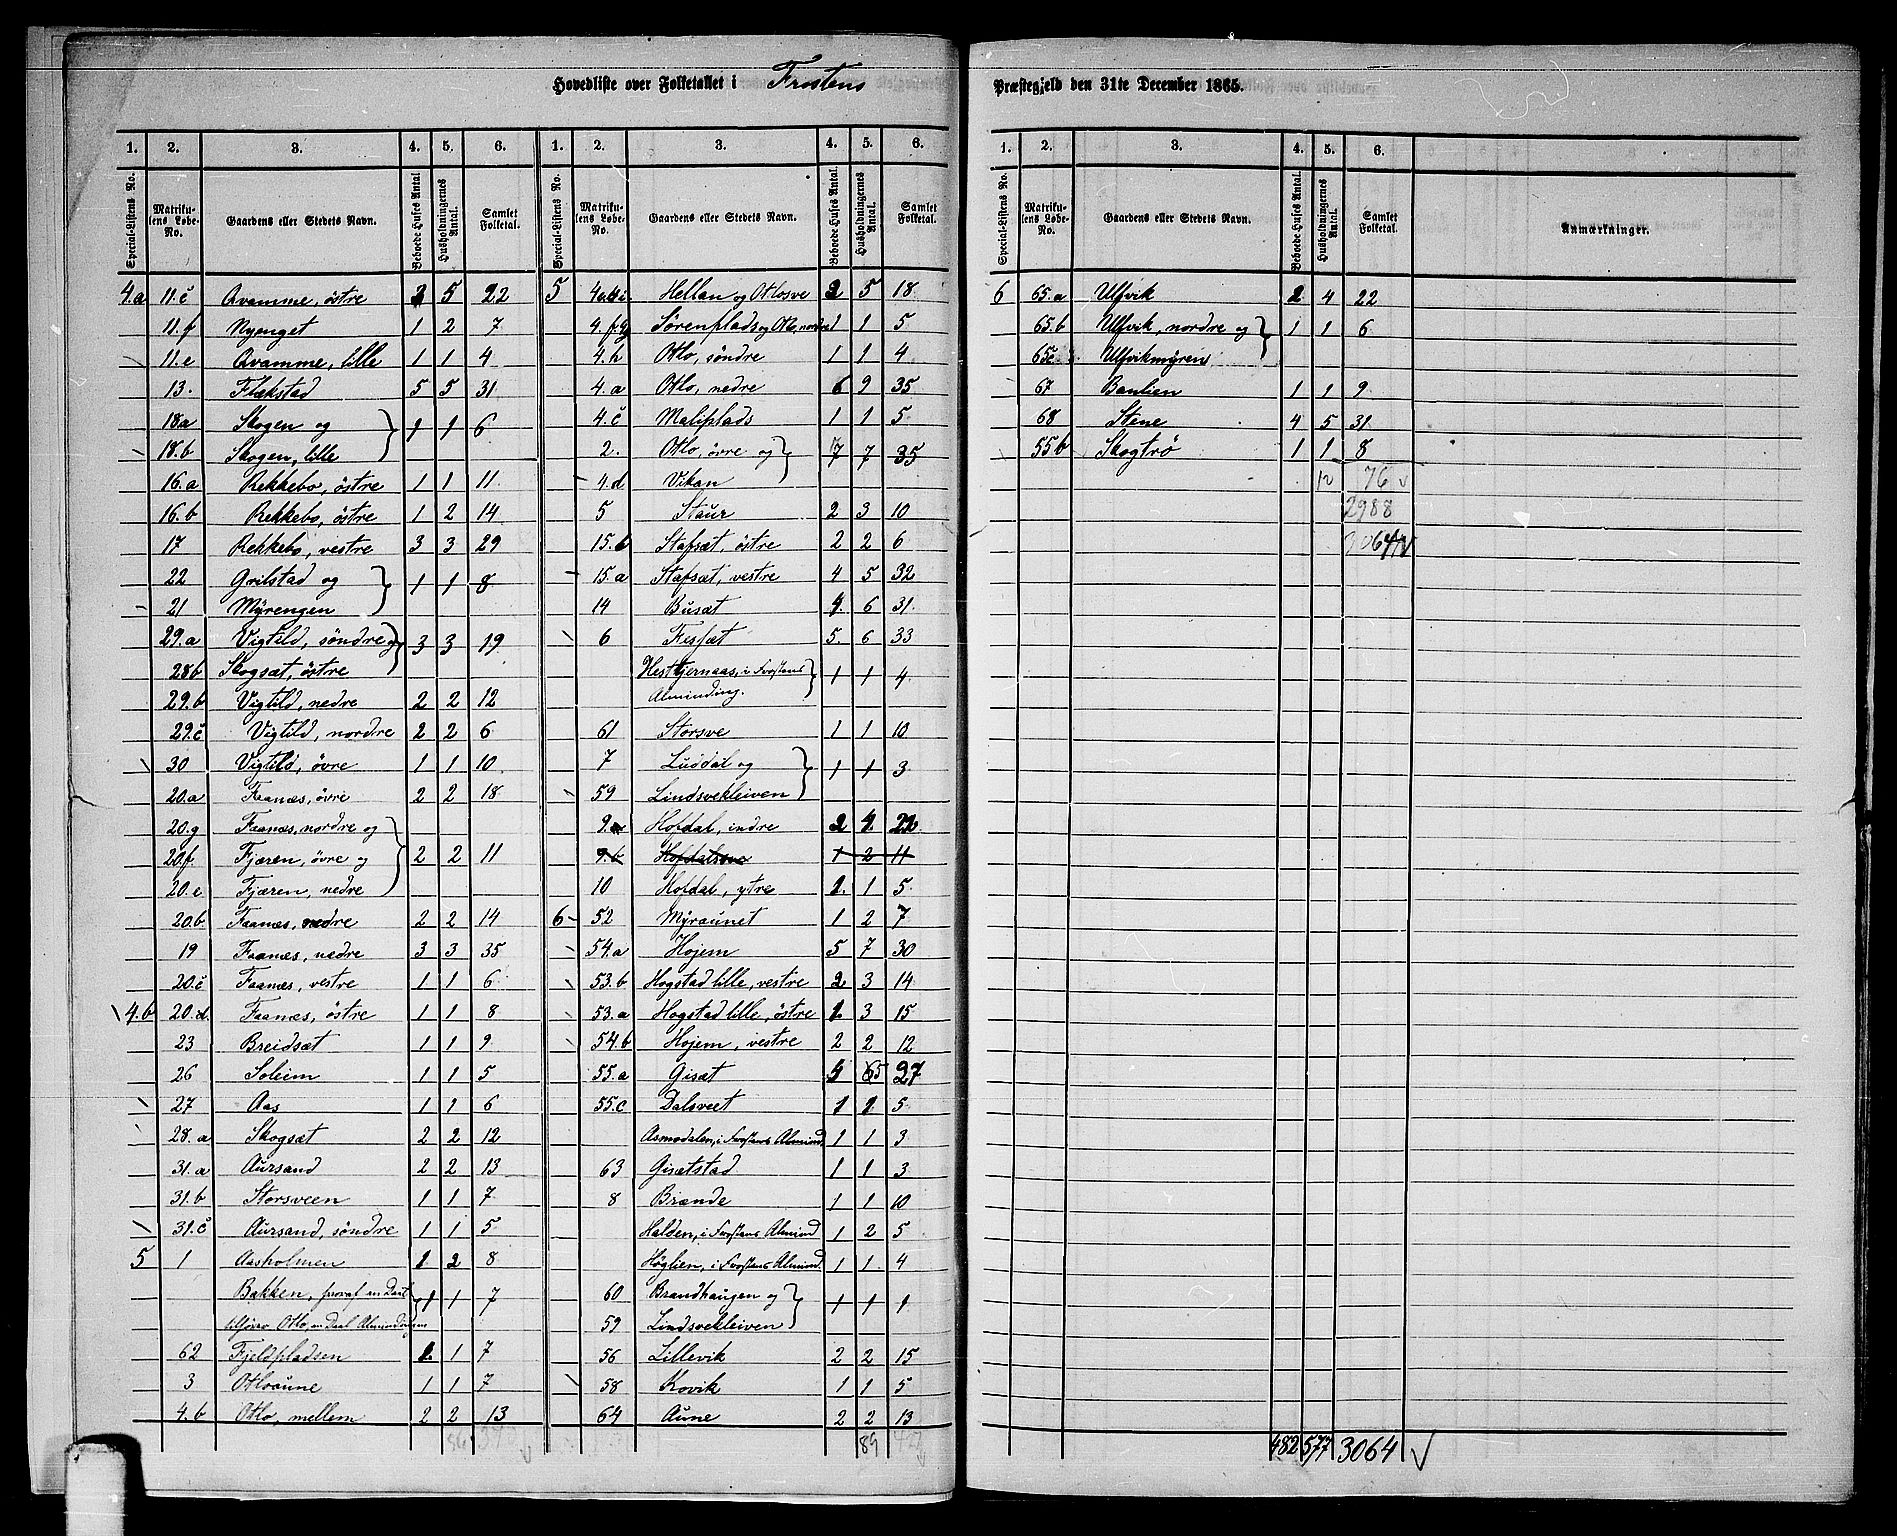 Hovedliste over Folketallet i Frostens Præstegjeld den 31te December 1865.
1. 2. 3. 4. 5. 6.
Special-Listens No. Matrikulens Løbe-No. Gaardens eller Stedets Navn. Beboede Huses Antal. Husholdningernes Antal. Samlet Folketal.
4.a 11.c Qvamme, östre 3 5 22
11.f Nyenget 1 2 7
11.e Qvamme, lille 1 1 4
13. Flækstad 5 5 31
18.a Skogen og } 1 1 6
18.b Skogen, lille
16.a Rekkebo, östre 1 1 11
16.b Rekkebo, östre 1 2 14
17 Rekkebo, vestre 3 3 29
22 Grilstad og } 1 1 8
21 Myrengen
29.a Vigtild, söndre og } 3 3 19
28b Skogsæt, östre
29.b Vigtild, nedre 2 2 12
29.c Vigtild, nordre 2 2 6
30 Vigtild, övre 1 1 10
20.a Faanæs, övre 2 2 18
20.g Faanæs, nordre og
20.f. Fjæren, övre og } 2 2 11
20.e Fjæren, nedre
20.b Faanæs, nedre 2 2 14
19 Faanæs, nedre 3 3 35
20.c Faanæs, vestre 1 1 6
4.b 20.d. Faanæs, östre 1 1 8
23 Breidsæt 1 1 9
26 Soleim 1 1 5
27 Aas 1 1 6
28.a Skogsæt 2 2 12
31.a Aursand 2 2 13
31.b Storsveen 1 1 7
31.c Aursand, söndre 1 1 5
5 1 Aasholmen 1 2 8
Bakken, hvoraf en Deel } 1 1 7
Otlo, en Deel Almindingen
62 Fjeldpladsen 1 1 7
3 Otloaune 1 1 7
4.b Otlo, mellem 2 2 13
1. 2. 3. 4. 5. 6.
Special-Listens No. Matrikulens Løbe-No. Gaardens eller Stedets Navn. Beboede Huses Antal. Husholdningernes Antal. Samlet Folketal.
5 Hellan og Otlosve 2 5 18
4.fg Sörenplads og Otlo, nordre 1 1 5
4.h Otlo, söndre 1 1 4
4.a Otlo, nedre 6 9 35
4.c Maliplads 1 1 5
2. Otlo, övre og } 7 7 35
4.d Vikan
5 Staur 2 3 10
15.b Stafsæt, östre 2 2 6
15.a Stafsæt, vestre 4 5 32
14 Busæt 4 6 31
6 Fissæt 5 6 33
Hestkjernaas, i Frostens } 1 1 4
Alminding.
61 Storsve 1 1 10
7 Luddal og } 1 1 3
59 Lindsvekleiven
9.a Hofdal, indre 2 4 22
9.b Hofdalssve 1 2 11
10 Hofdal, ytre 1 1 5
6 52 Myraunet 1 2 7
54.a Hojem 5 7 30
53.b Hogstad lille, vestre 2 3 14
53.a Hogstad lille, östre 1 3 15
54.b Hojem, vestre 2 2 12
55.a Gisæt 5 27
55.c Dalsveet 1 1 5
Asmodalen, i Frostens Almind. 1 1 3
63 Gisætstad 1 1 3
8 Brænde 1 1 10
Halden, i Frostens Almind 1 2 5
Höglien, i Frostens Almind. 1 1 4
60 Brandhaugen og } 1 1 1
59 Lindsvekleiven
56 Lillevik 2 2 15
58 Kovik 1 1 5
64 Aune 2 2 13
89
1. 2. 3. 4. 5. 6.
Special-Listens No. Matrikulens Løbe-No. Gaardens eller Stedets Navn. Beboede Huses Antal. Husholdningernes Antal. Samlet Folketal. Anmærkninger.
6 65.a Ulfvik 2 4 22
65.b Ulfvik, nordre og } 1 1 6
65c Ulfvikmyren
67 Banlien 1 1 9
68 Stene 4 5 31
55b Skogtrö 1 1 8
12 76
2988
3064
482 577 3064